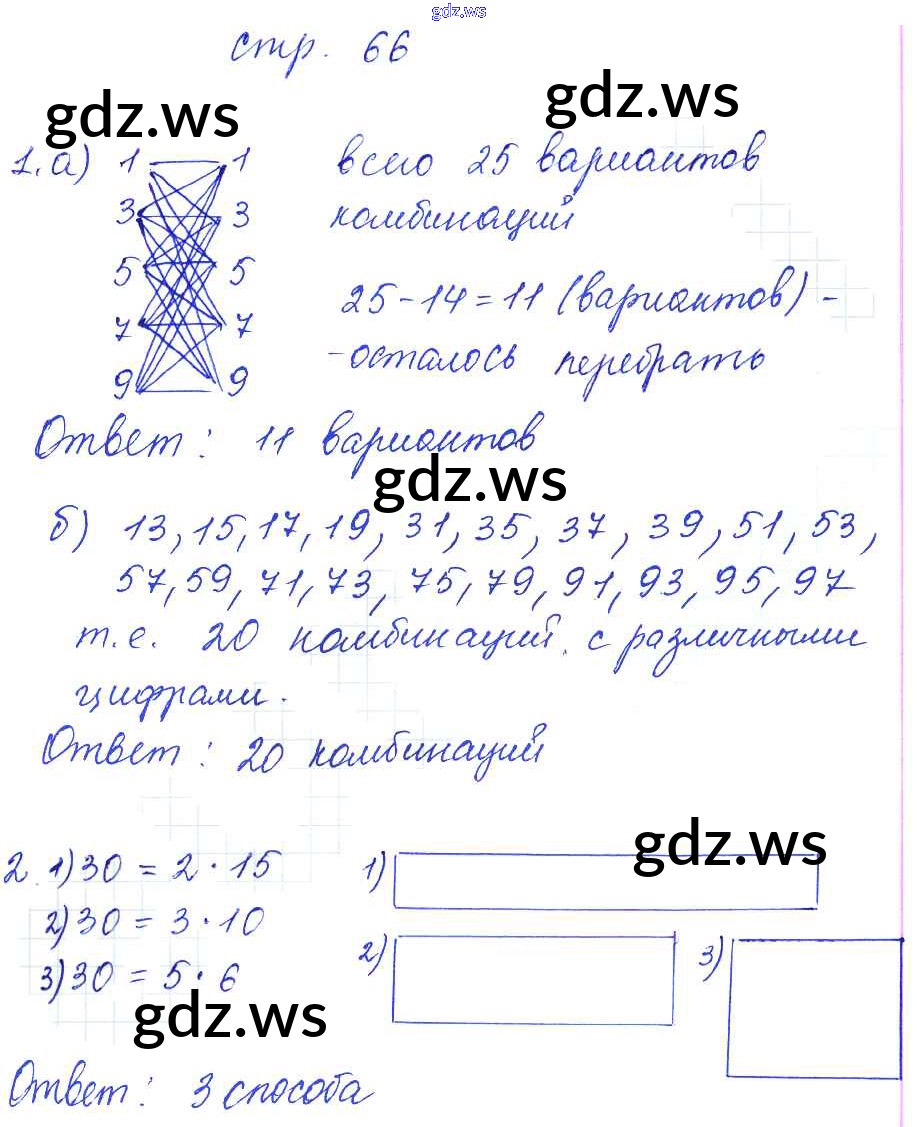 gdz.ws
стр. 66
gdz.ws gdz.ws
1. а) 1 1 всего 25 вариантов
3 3 комбинаций
5 5 25-14=11 (вариантов) -
7 7 -осталось перебрать
9 9
Ответ: 11 вариантов
gdz.ws
б) 13, 15, 17, 19, 31, 35, 37, 39, 51, 53,
57, 59, 71, 73, 75, 79, 91, 93, 95, 97
т.е. 20 комбинаций с различными
цифрами.
Ответ: 20 комбинаций
gdz.ws
2. 1) 30 = 2 · 15 1)
2) 30 = 3 · 10 2) 3)
3) 30 = 5 · 6
gdz.ws
Ответ: 3 способа